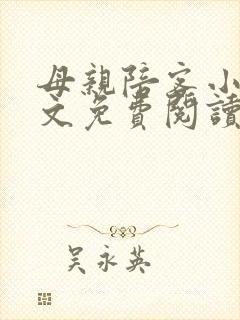 母親陪客小
文免費閱讀
吴永英